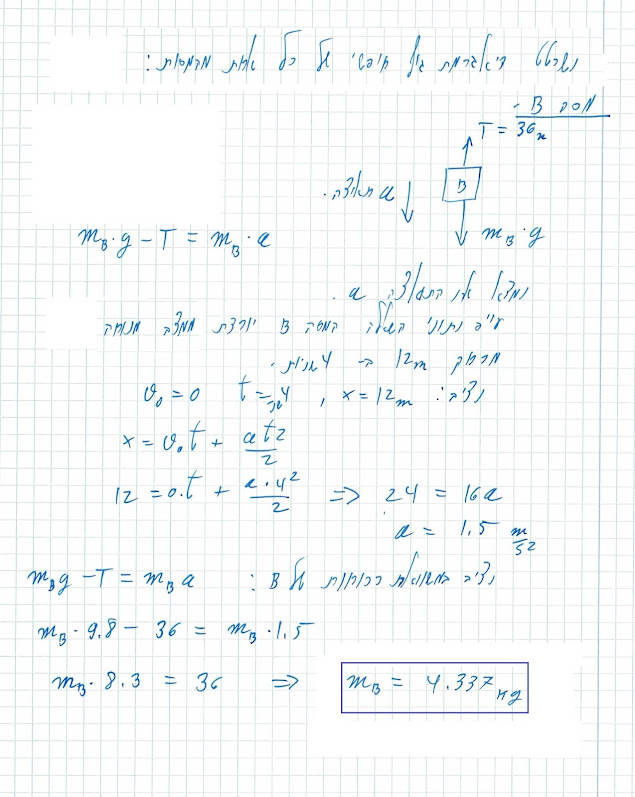 נשרטט דיאגרמת גוף חופשי של כל אחת מהמסות:
מסה B -
T = 36н
B
a תאוצה.
mB·g
mB·g − T = mB·a
נמצא את התאוצה a.
ע"פ נתוני השאלה המסה B יורדת ממצב מנוחה
מרחק 12m ב- 4 שניות.
נציב: x = 12m , t = 4שנ v₀ = 0
x = v₀t + at²/2
12 = 0·t + a·4²/2 ⇒ 24 = 16a
a = 1.5 m/s²
נציב במשוואת הכוחות של B : mBg − T = mBa
mB·9.8 − 36 = mB·1.5
mB·8.3 = 36 ⇒ mB = 4.337кд